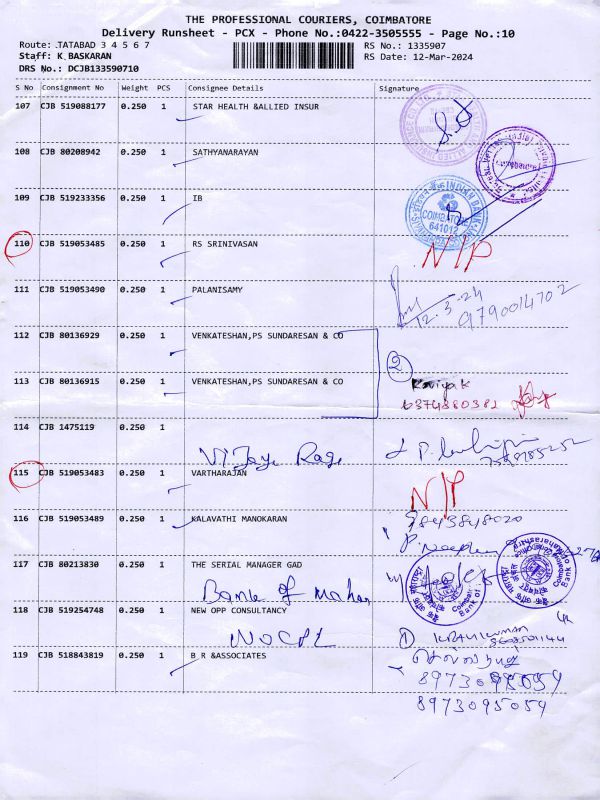 THE PROFESSIONAL COURIERS, COIMBATORE
Delivery Runsheet - PCX - Phone No.:0422-3505555 - Page No.:10
Route: TATABAD 3 4 5 6 7 RS No.: 1335907
Staff: K BASKARAN RS Date: 12-Mar-2024
DRS No.: DCJB133590710
S No Consignment No Weight PCS Consignee Details Signature
107 CJB 519088177 0.250 1 STAR HEALTH &ALLIED INSUR
108 CJB 80208942 0.250 1 SATHYANARAYAN
109 CJB 519233356 0.250 1 IB
INDIAN BANK
COIMBATORE
641012
110 CJB 519053485 0.250 1 RS SRINIVASAN N/P
111 CJB 519053490 0.250 1 PALANISAMY
12-3-24
9790014702
112 CJB 80136929 0.250 1 VENKATESHAN,PS SUNDARESAN & CO
2
113 CJB 80136915 0.250 1 VENKATESHAN,PS SUNDARESAN & CO Kaviya K
6374380381
114 CJB 1475119 0.250 1
Vijaya Rage
115 CJB 519053483 0.250 1 VARTHARAJAN N/P
116 CJB 519053489 0.250 1 KALAVATHI MANOKARAN 9843848020
117 CJB 80213830 0.250 1 THE SERIAL MANAGER GAD
Bank of Mahar
Bank of Maharashtra
118 CJB 519254748 0.250 1 NEW OPP CONSULTANCY
NOCPL
119 CJB 518843819 0.250 1 B R &ASSOCIATES
8973095059
8973095059